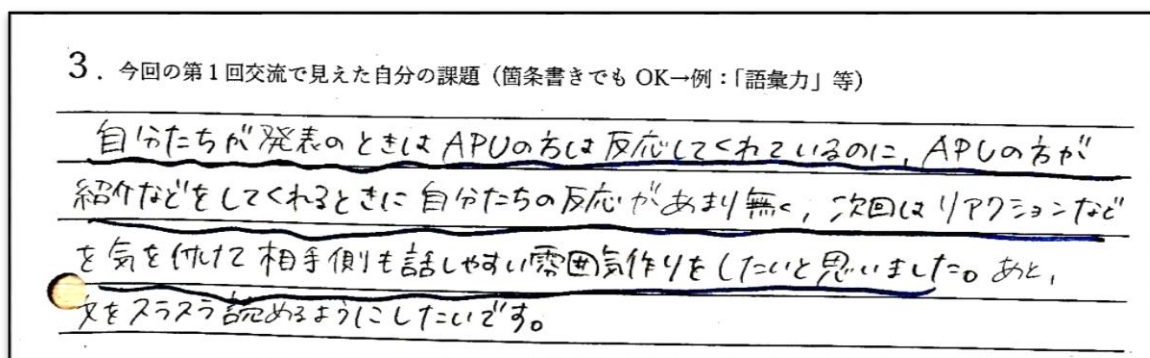 3．今回の第1回交流で見えた自分の課題（箇条書きでも OK→例：「語彙力」等）
自分たちが発表のときは APUの方は反応してくれているのに、APUの方が
紹介などをしてくれるときに自分たちの反応があまり無く、次回はリアクションなど
を気を付けて相手側も話しやすい雰囲気作りをしたいと思いました。あと、
文をスラスラ読めるようにしたいです。